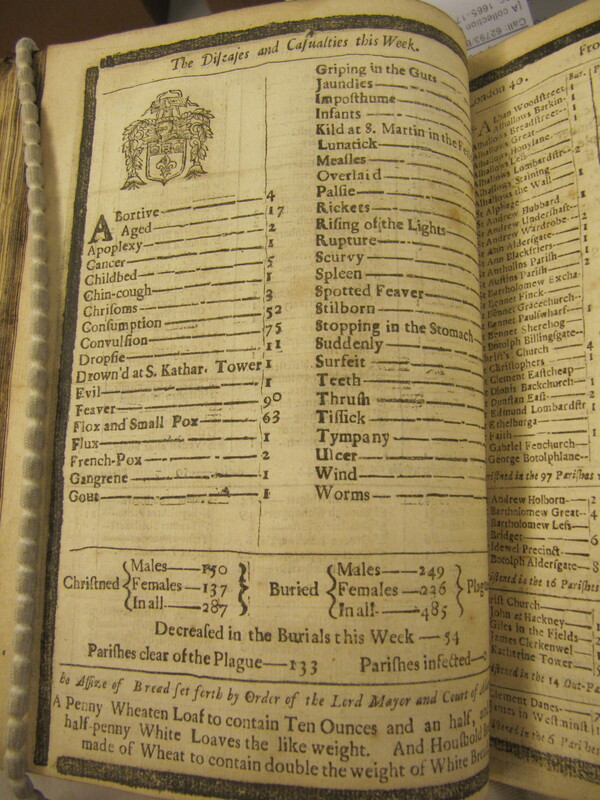 Call: 62793
[A collection
1665-17
The Diſeaſes and Caſualties this Week.
Abortive 4
Aged 17
Apoplexy 2
Cancer 1
Childbed 5
Chin-cough 1
Chriſoms 3
Conſumption 52
Convulſion 75
Dropſie 11
Drown'd at S. Kathar. Tower 1
Evil 1
Feaver 90
Flox and Small Pox 63
Flux 1
French-Pox 2
Gangrene 1
Gout 1
Griping in the Guts
Jaundies
Impoſthume
Infants
Kild at S. Martin in the
Lunatick
Meaſles
Overlaid
Palſie
Rickets
Riſing of the Lights
Rupture
Scurvy
Spleen
Spotted Feaver
Stilborn
Stopping in the Stomach
Suddenly
Surfeit
Teeth
Thruſh
Tiſſick
Tympany
Ulcer
Wind
Worms
Chriſtned { Males 150 Females 137 In all 287 }
Buried { Males 249 Females 236 In all 485 } Plague
Decreaſed in the Burials this Week 54
Pariſhes clear of the Plague 133 Pariſhes infected
he Aſſize of Bread ſet forth by Order of the Lord Mayor and Court of
A Penny Wheaten Loaf to contain Ten Ounces and an half, and
half-penny White Loaves the like weight. And Houſhold
made of Wheat to contain double the weight of White Bread
London 40. Fro
Bur.
Alban Woodſtreet
Alhallows Barkin
Alhallows Breadſtreet
Alhallows Great
Alhallows Honylane
Alhallows Leſs
Alhallows Lombardſtr 2
Alhallows Staining
Alhallows the Wall
St Alphage
St Andrew Hubbard
St Andrew Underſhaft
St Andrew Wardrobe
St Ann Alderſgate
St Ann Blackfriers
St Antholins Pariſh
Auſtins Pariſh
Bartholomew Excha
Bennet Finck
Bennet Gracechurch
Bennet Paulſwharf
Bennet Sherehog
Botolph Billingſgate
Chriſt's Church 4
Chriſtophers 1
Clement Eaſtcheap
Dionis Backchurch 1
Dunſtan Eaſt 2
Edmund Lombardſtr 1
Ethelburga
Faith 1
Gabriel Fenchurch
George Botolphlane
riſtned in the 97 Pariſhes
Andrew Holborn 2
Bartholomew Great 4
Bartholomew Leſs
Bridget 6
Bridewel Precinct
Botolph Alderſgate 8
riſtned in the 16 Pariſhes
Chriſt Church
John at Hackney
Giles in the Fields 2
James Clerkenwel
Katherine Tower 5
riſtned in the 14 Out-Pa
Clement Danes 7
James in Weſtminſt
riſtned in the 6 Pariſhes